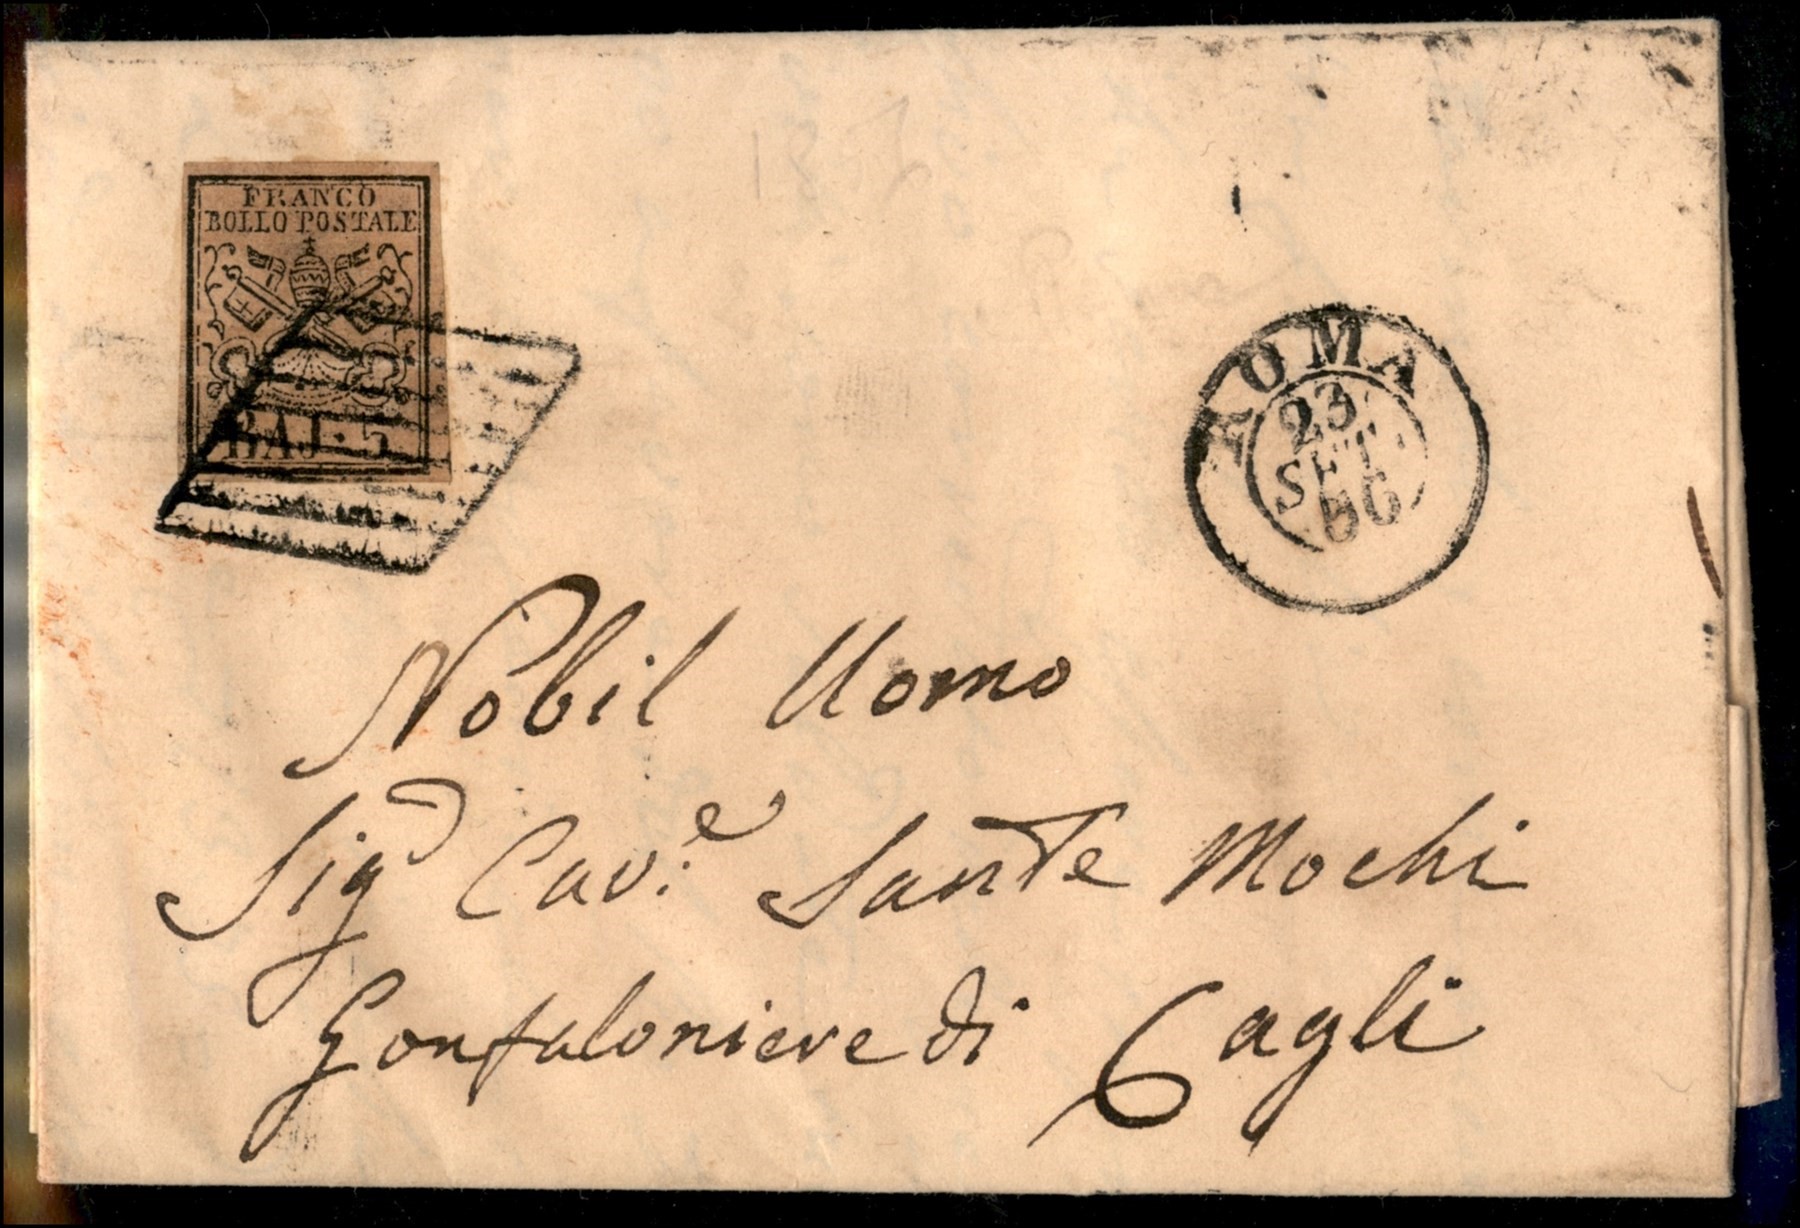 FRANCO
BOLLO POSTALE
BAJ. 5
ROMA
23
SET.
56
Nobil Uomo
Sig.r Cav.e Sante Mochi
Gonfaloniere di Cagli